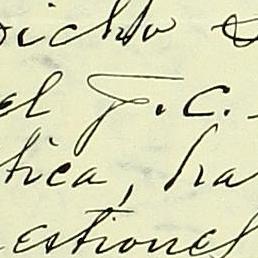 dicho
el F.C.
tica, ha
estiones